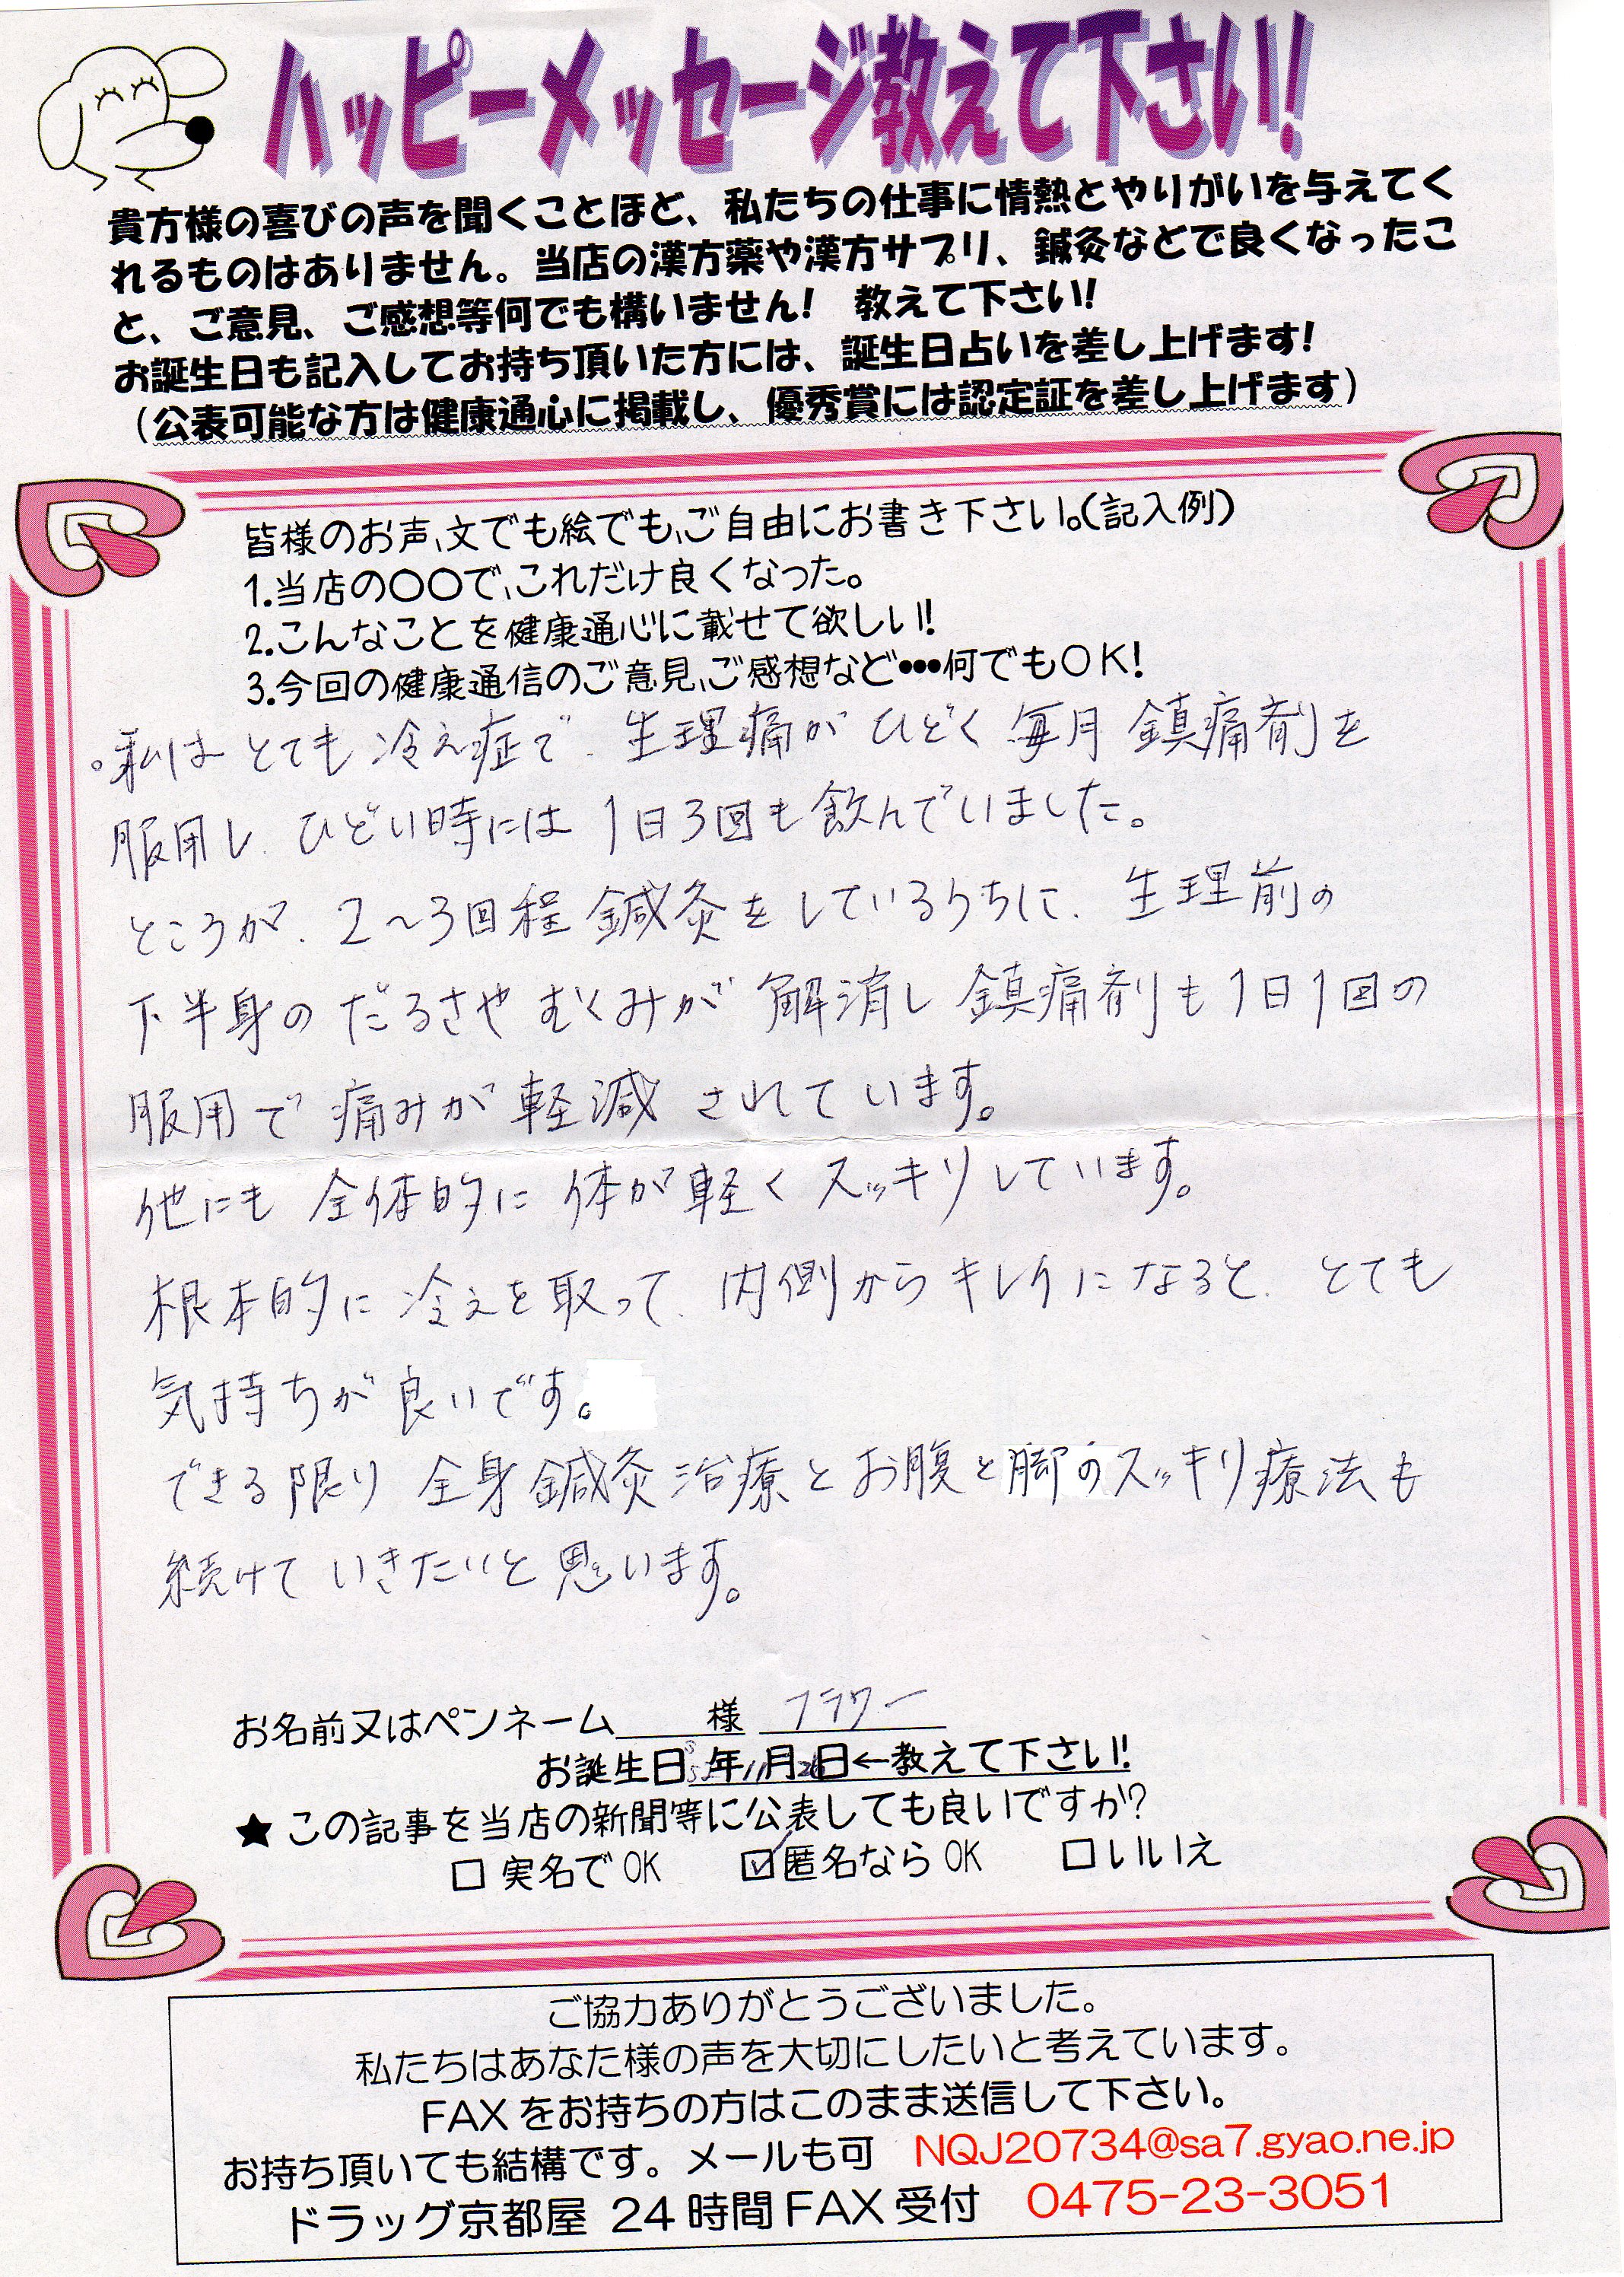 ハッピーメッセージ教えて下さい!
貴方様の喜びの声を聞くことほど、私たちの仕事に情熱とやりがいを与えてく
れるものはありません。当店の漢方薬や漢方サプリ、鍼灸などで良くなったこ
と、ご意見、ご感想等何でも構いません! 教えて下さい!
お誕生日も記入してお持ち頂いた方には、誕生日占いを差し上げます!
(公表可能な方は健康通心に掲載し、優秀賞には認定証を差し上げます)
皆様のお声、文でも絵でも、ご自由にお書き下さい。(記入例)
1.当店の〇〇で、これだけ良くなった。
2.こんなことを健康通心に載せて欲しい!
3.今回の健康通信のご意見、ご感想など•••何でもOK!
。私は とても 冷え症で、生理痛が ひどく 毎月 鎮痛剤を
服用し、ひどい時には 1日3回も飲んでいました。
ところが、2〜3回程 鍼灸をしているうちに、生理前の
下半身の だるさや むくみが 解消し 鎮痛剤も1日1回の
服用で 痛みが 軽減 されています。
他にも 全体的に 体が軽く スッキリしています。
根本的に 冷えを取って、内側から キレイになると、とても
気持ちが良いです。
できる限り 全身鍼灸治療と お腹と脚のスッキリ療法も
続けて いきたいと 思います。
お名前又はペンネーム 様 フラワー
お誕生日 年11月26日←教えて下さい!
★この記事を当店の新聞等に公表しても良いですか?
□ 実名でOK ☑匿名なら OK □いいえ
ご協力ありがとうございました。
私たちはあなた様の声を大切にしたいと考えています。
FAXをお持ちの方はこのまま送信して下さい。
お持ち頂いても結構です。メールも可 NQJ20734@sa7.gyao.ne.jp
ドラッグ京都屋 24時間FAX受付 0475-23-3051